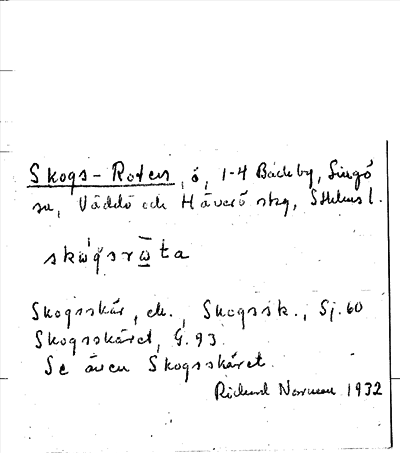 Skogs-Roten, ö, 1-4 Backby, Singö
sn, Väddö och Häverö skg, Sthlms l.
skωgsrω̲ta
Skogsskär, ek., Skogssk., Sj. 60
Skogsskäret, G. 93.
Se även Skogsskäret.
Rickard Norman 1932